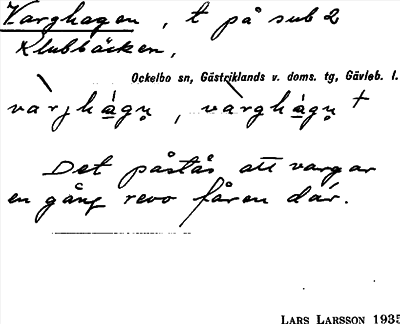 Varghagen, t på sub 2
Klubbäcken,
Ockelbo sn, Gästriklands v. doms. tg, Gävleb. l.
vàrjhágṇ, vàrghágṇ +
Det påstås att vargar
en gång revo fåren där.
LARS LARSSON 1935